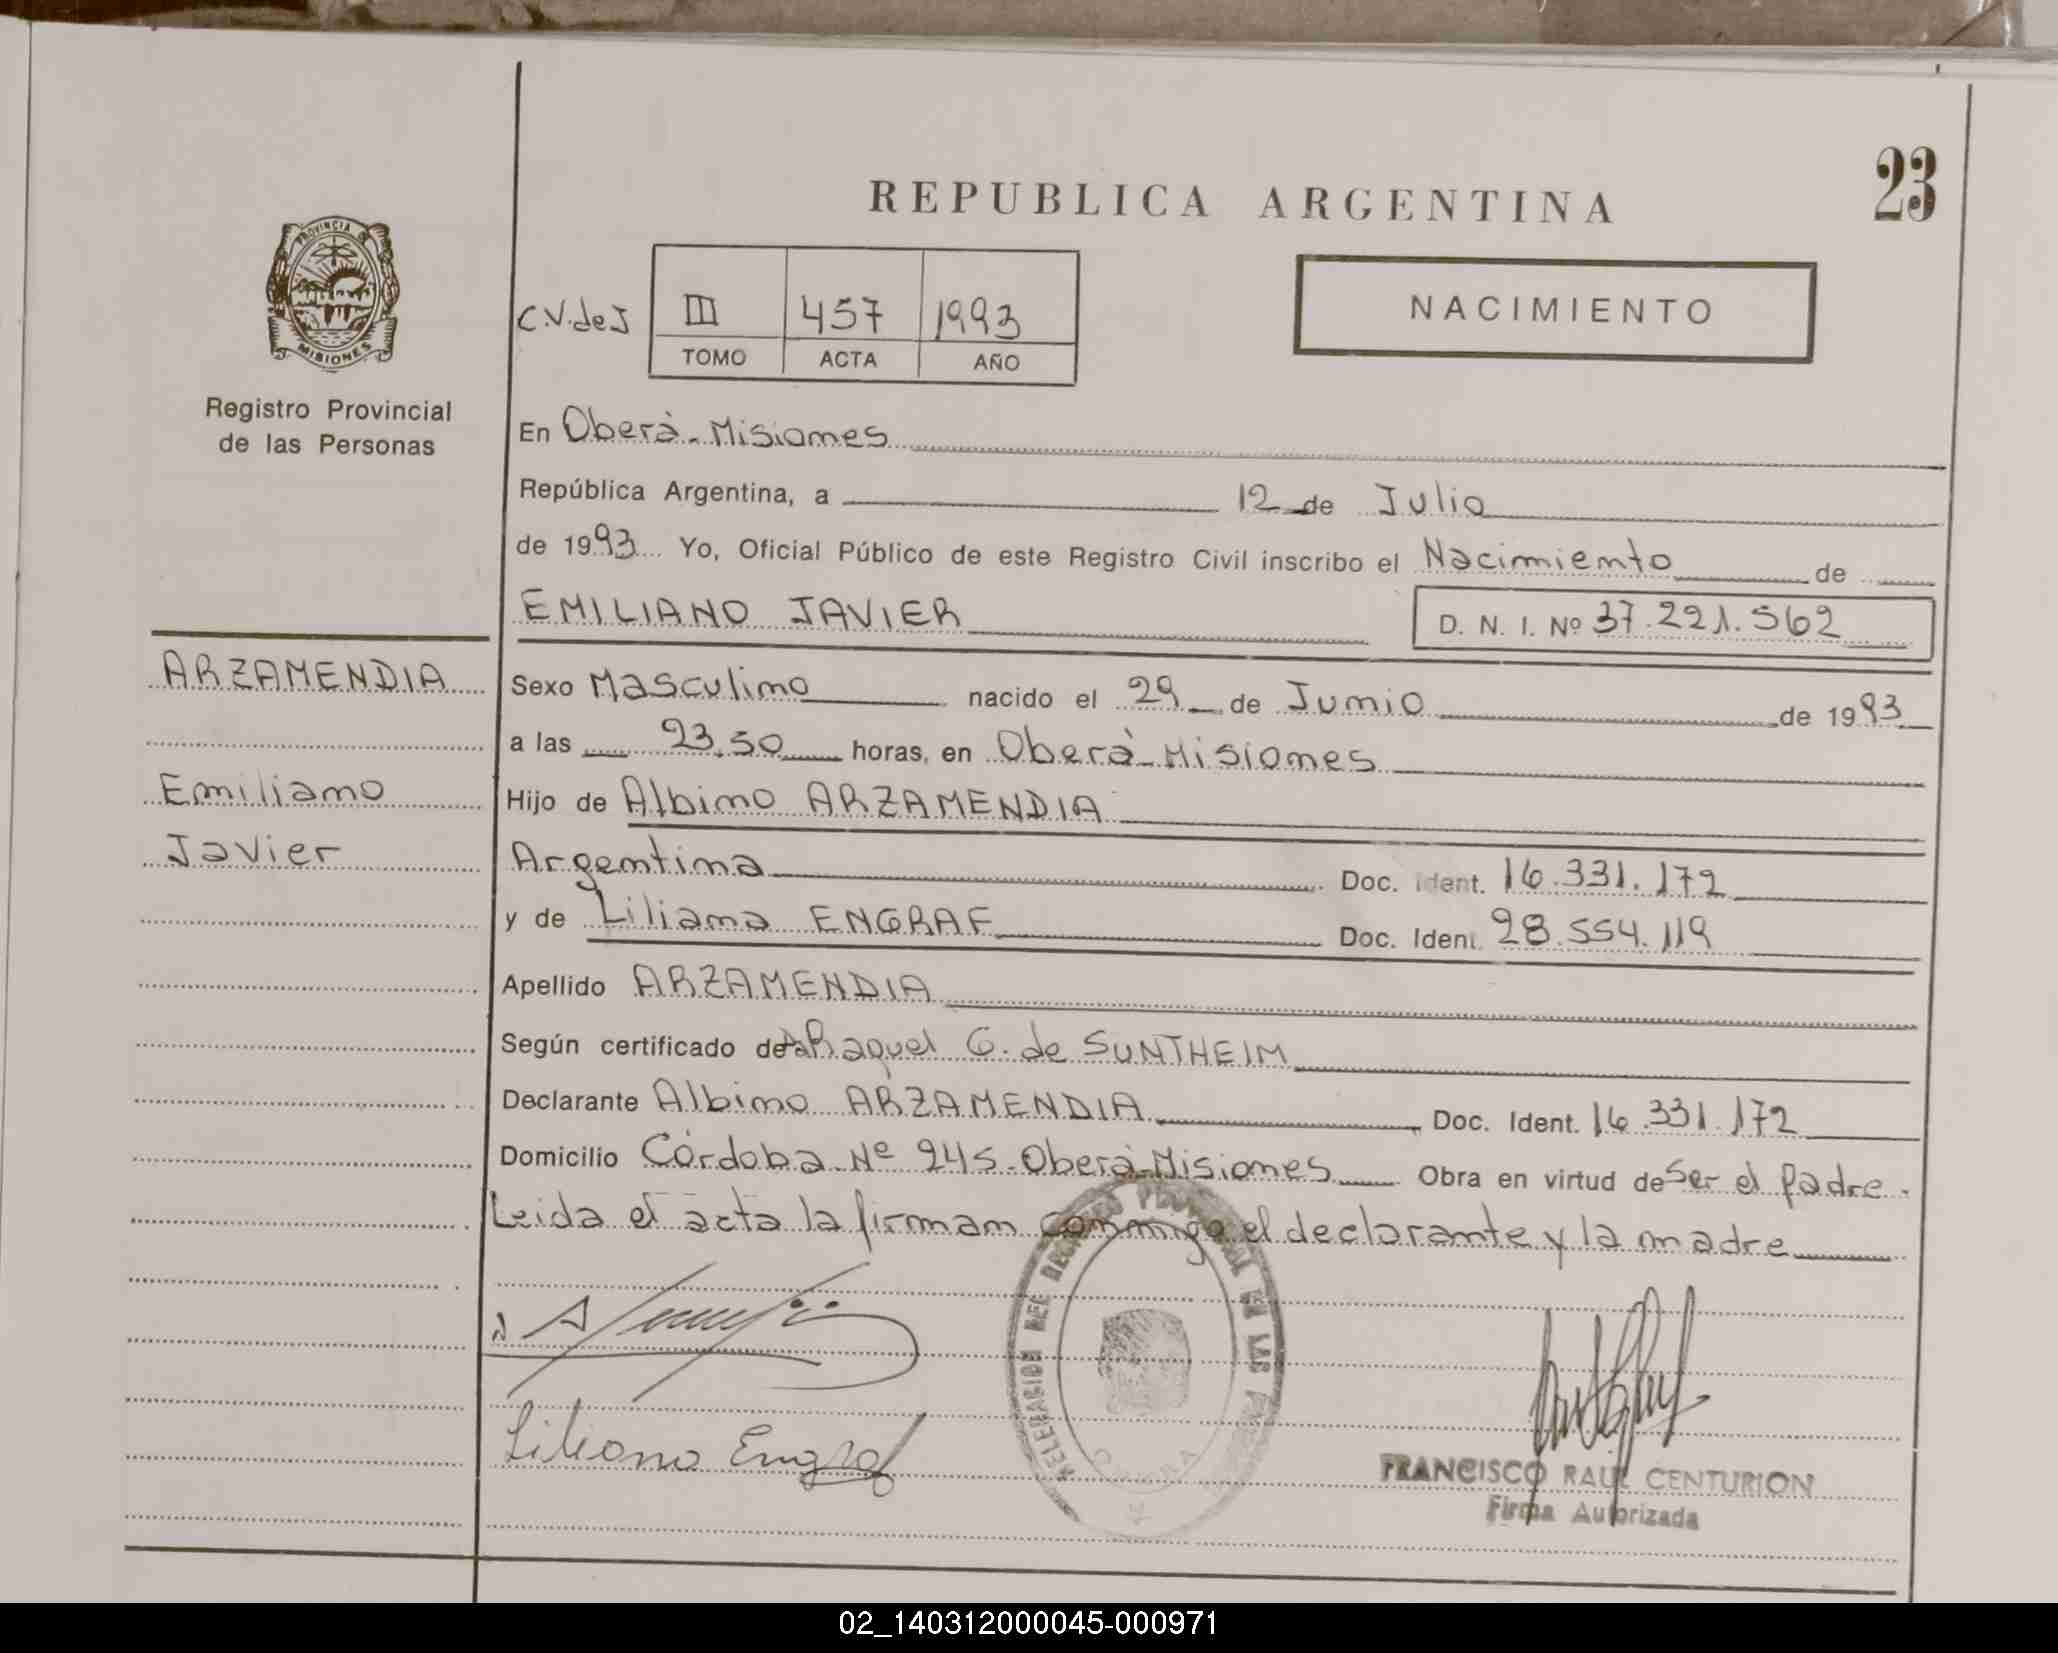 REPUBLICA ARGENTINA
23
PROVINCIA DE
MISIONES
Registro Provincial
de las Personas
C.V.deJ
III 457 1993
TOMO ACTA AÑO
NACIMIENTO
En Oberà - Misiones
República Argentina, a 12 de Julio
de 1993 Yo, Oficial Público de este Registro Civil inscribo el Nacimiento de
EMILIANO JAVIER D. N. I. Nº 37.221.562
ARZAMENDIA
Emiliano
Javier
Sexo Masculino nacido el 29 de Junio de 1993
a las 23.50 horas, en Oberà - Misiones
Hijo de Albino ARZAMENDIA
Argentina Doc. Ident. 16.331.172
y de Liliana ENGRAF Doc. Ident. 28.554.119
Apellido ARZAMENDIA
Según certificado de Raquel G. de SUNTHEIM
Declarante Albino ARZAMENDIA Doc. Ident. 16.331.172
Domicilio Córdoba Nº 245 - Oberà - Misiones Obra en virtud de Ser el padre.
Leida el acta la firman conmigo el declarante y la madre
DELEGACION DEL REGISTRO PROVINCIAL DE LAS
OBERA
Liliana Engraf
FRANCISCO RAUL CENTURION
Firma Autorizada
02_140312000045-000971